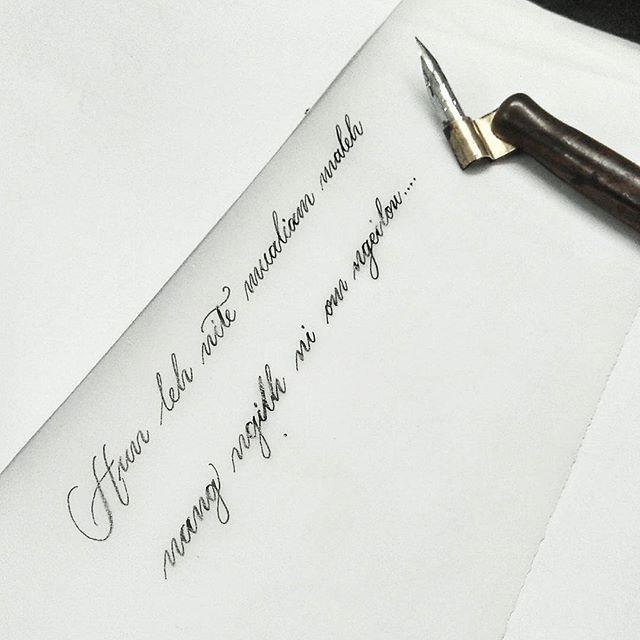 Hun leh nite mualiam maleh
nang ngilh ni om ngeilou....